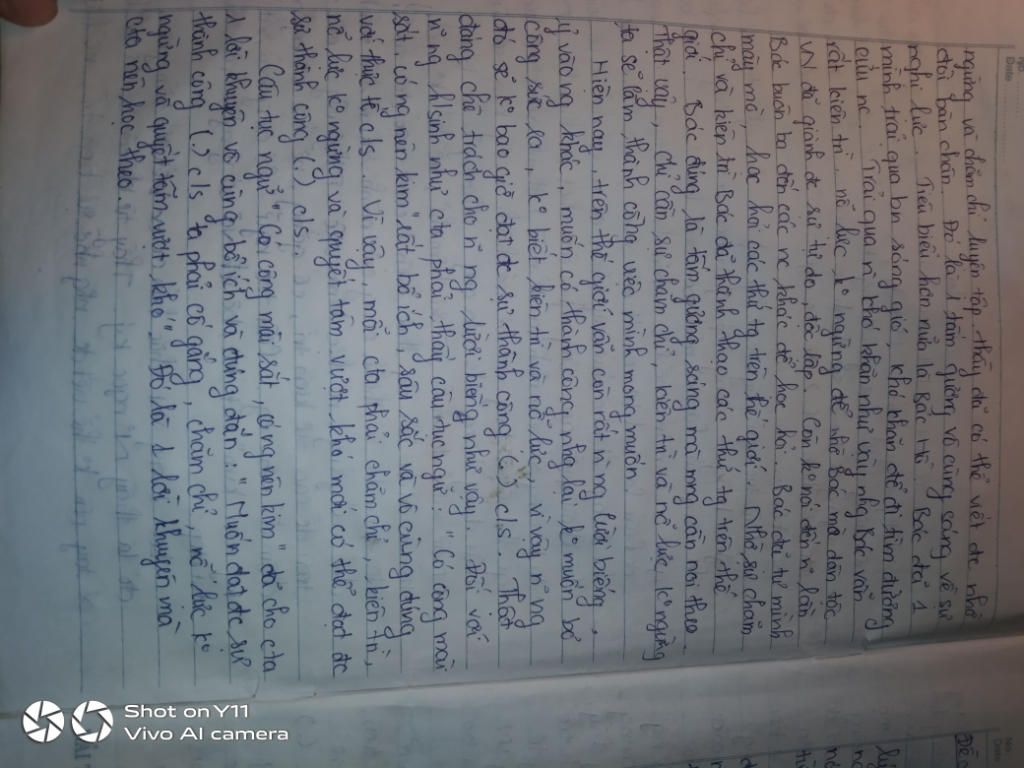 ngừng và chăm chỉ luyện tập, thầy đã có thể viết đc nhờ
đôi bàn chân. Đó là 1 tấm gương vô cùng sáng về sự
nghị lực. Tiêu biểu hơn nữa là Bác Hồ. Bác đã 1
mình trải qua bn sóng gió, khó khăn để đi tìm đường
cứu nc. Trải qua n~ khó khăn như vậy nhg Bác vẫn
rất kiên trì, nỗ lực k° ngừng để nhờ Bác mà dân tộc
VN đã giành đc sự tự do, độc lập. Còn k° nói đến n~ lần
Bác buôn ba đến các nc khác để học hỏi. Bác đã tự mình
mày mò, học hỏi các thứ tg trên thế giới. Nhờ sự chăm
chỉ và kiên trì Bác đã thành thạo các thứ tg trên thế
giới. Bác đúng là tấm gương sáng mà mng cần noi theo.
Thật vậy, chỉ cần sự chăm chỉ, kiên trì và nỗ lực k° ngừng
ta sẽ làm thành công việc mình mong muốn.
Hiện nay, trên thế giới vẫn còn rất n` ng lười biếng,
ỷ vào ng khác, muốn có thành công nhg lại k° muốn bỏ
công sức ra, k° biết kiên trì và nỗ lực, vì vậy n~ ng
đó sẽ k° bao giờ đạt đc sự thành công (.) c/s. Thật
đáng chê trách cho n~ ng lười biếng như vậy. Đối với
n~ ng h/sinh như cta phải thấy câu tục ngữ: "Có công mài
sắt có ng nên kim" rất bổ ích, sâu sắc và vô cùng đúng
với thực tế c/s. Vì vậy, mỗi cta phải chăm chỉ, kiên trì,
nỗ lực k° ngừng và quyết tâm vượt khó mới có thể đạt đc
sự thành công (.) c/s.
Câu tục ngữ "Có công mài sắt, có ng nên kim" đã cho cta
1 lời khuyên vô cùng bổ ích và đúng đắn: "Muốn đạt đc sự
thành công (.) c/s ta phải cố gắng, chăm chỉ, nỗ lực k°
ngừng và quyết tâm vượt khó". Đó là 1 lời khuyên mà
cta nên học theo.
Shot on Y11
Vivo AI camera